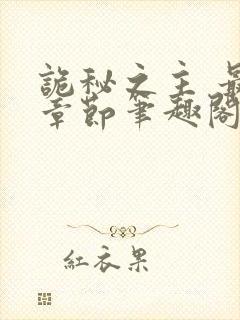 詭秘之主 最
章節筆趣閣
紅衣果